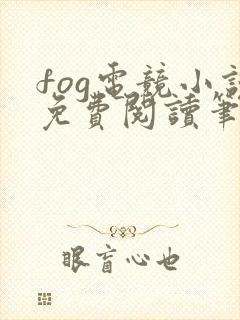 fog電競小說
免費閱讀筆
眼盲心也